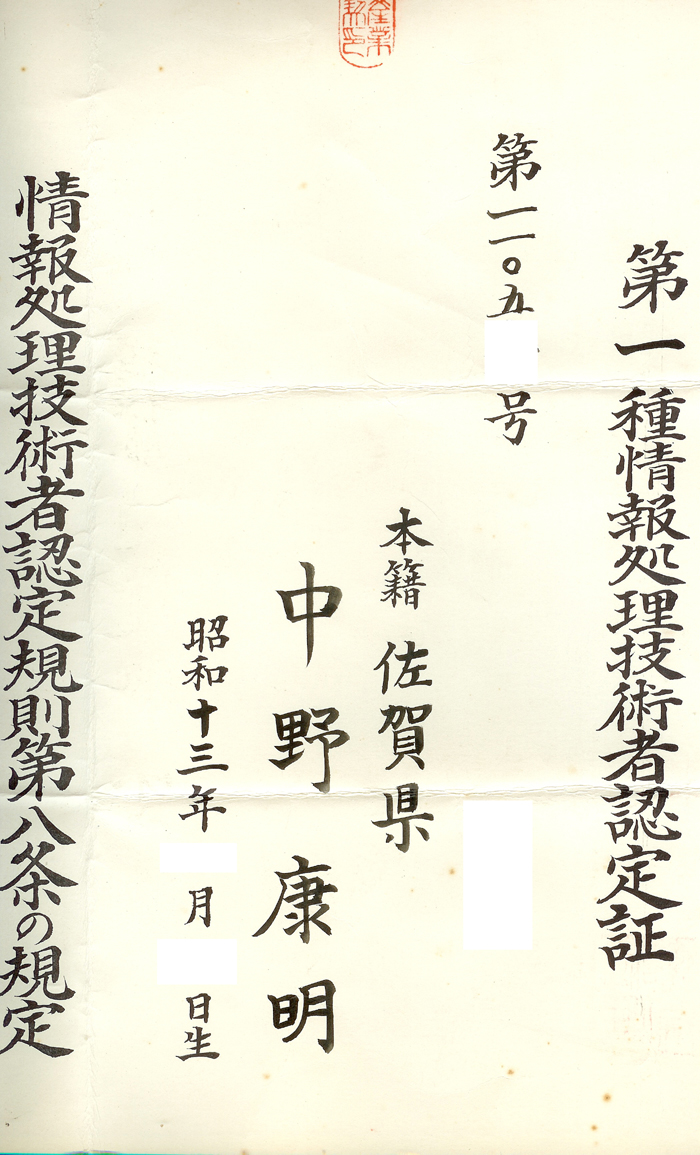 産業
契印
第一種情報処理技術者認定証
第一一〇五
号
本籍 佐賀県
中野康明
昭和十三年 月 日生
情報処理技術者認定規則第八条の規定